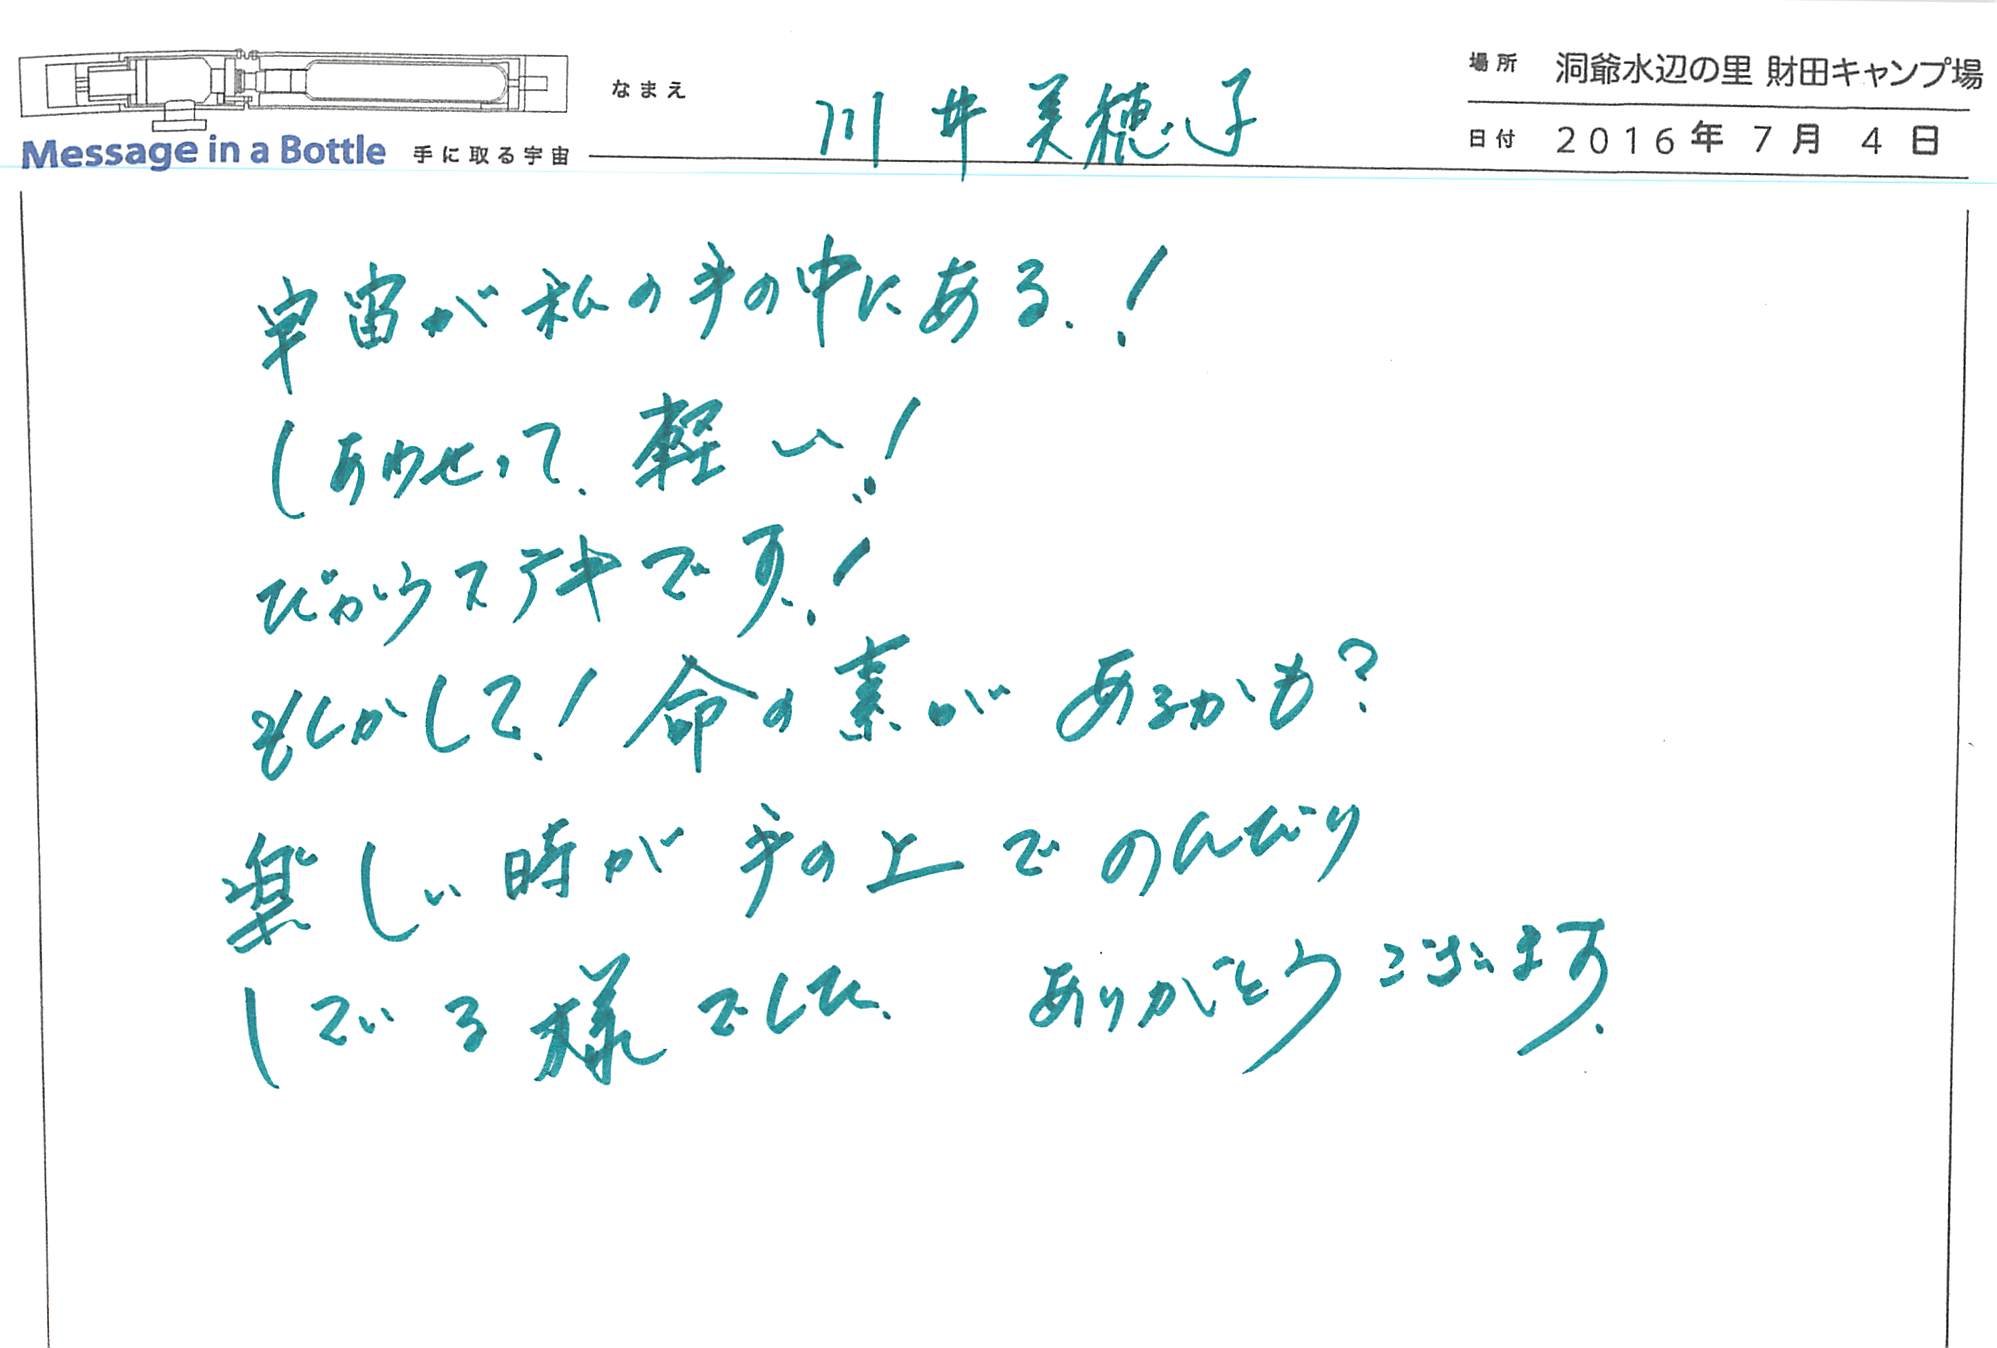 Message in a Bottle 手に取る宇宙
なまえ 川井美穂子
場所 洞爺水辺の里 財田キャンプ場
日付 2016年 7月 4日
宇宙が私の手の中にある.!
しあわせって.軽い!
だからステキです.!
もしかして!命の素があるかも?
楽しい時が手の上でのんびり
している様でした. ありがとうございます.